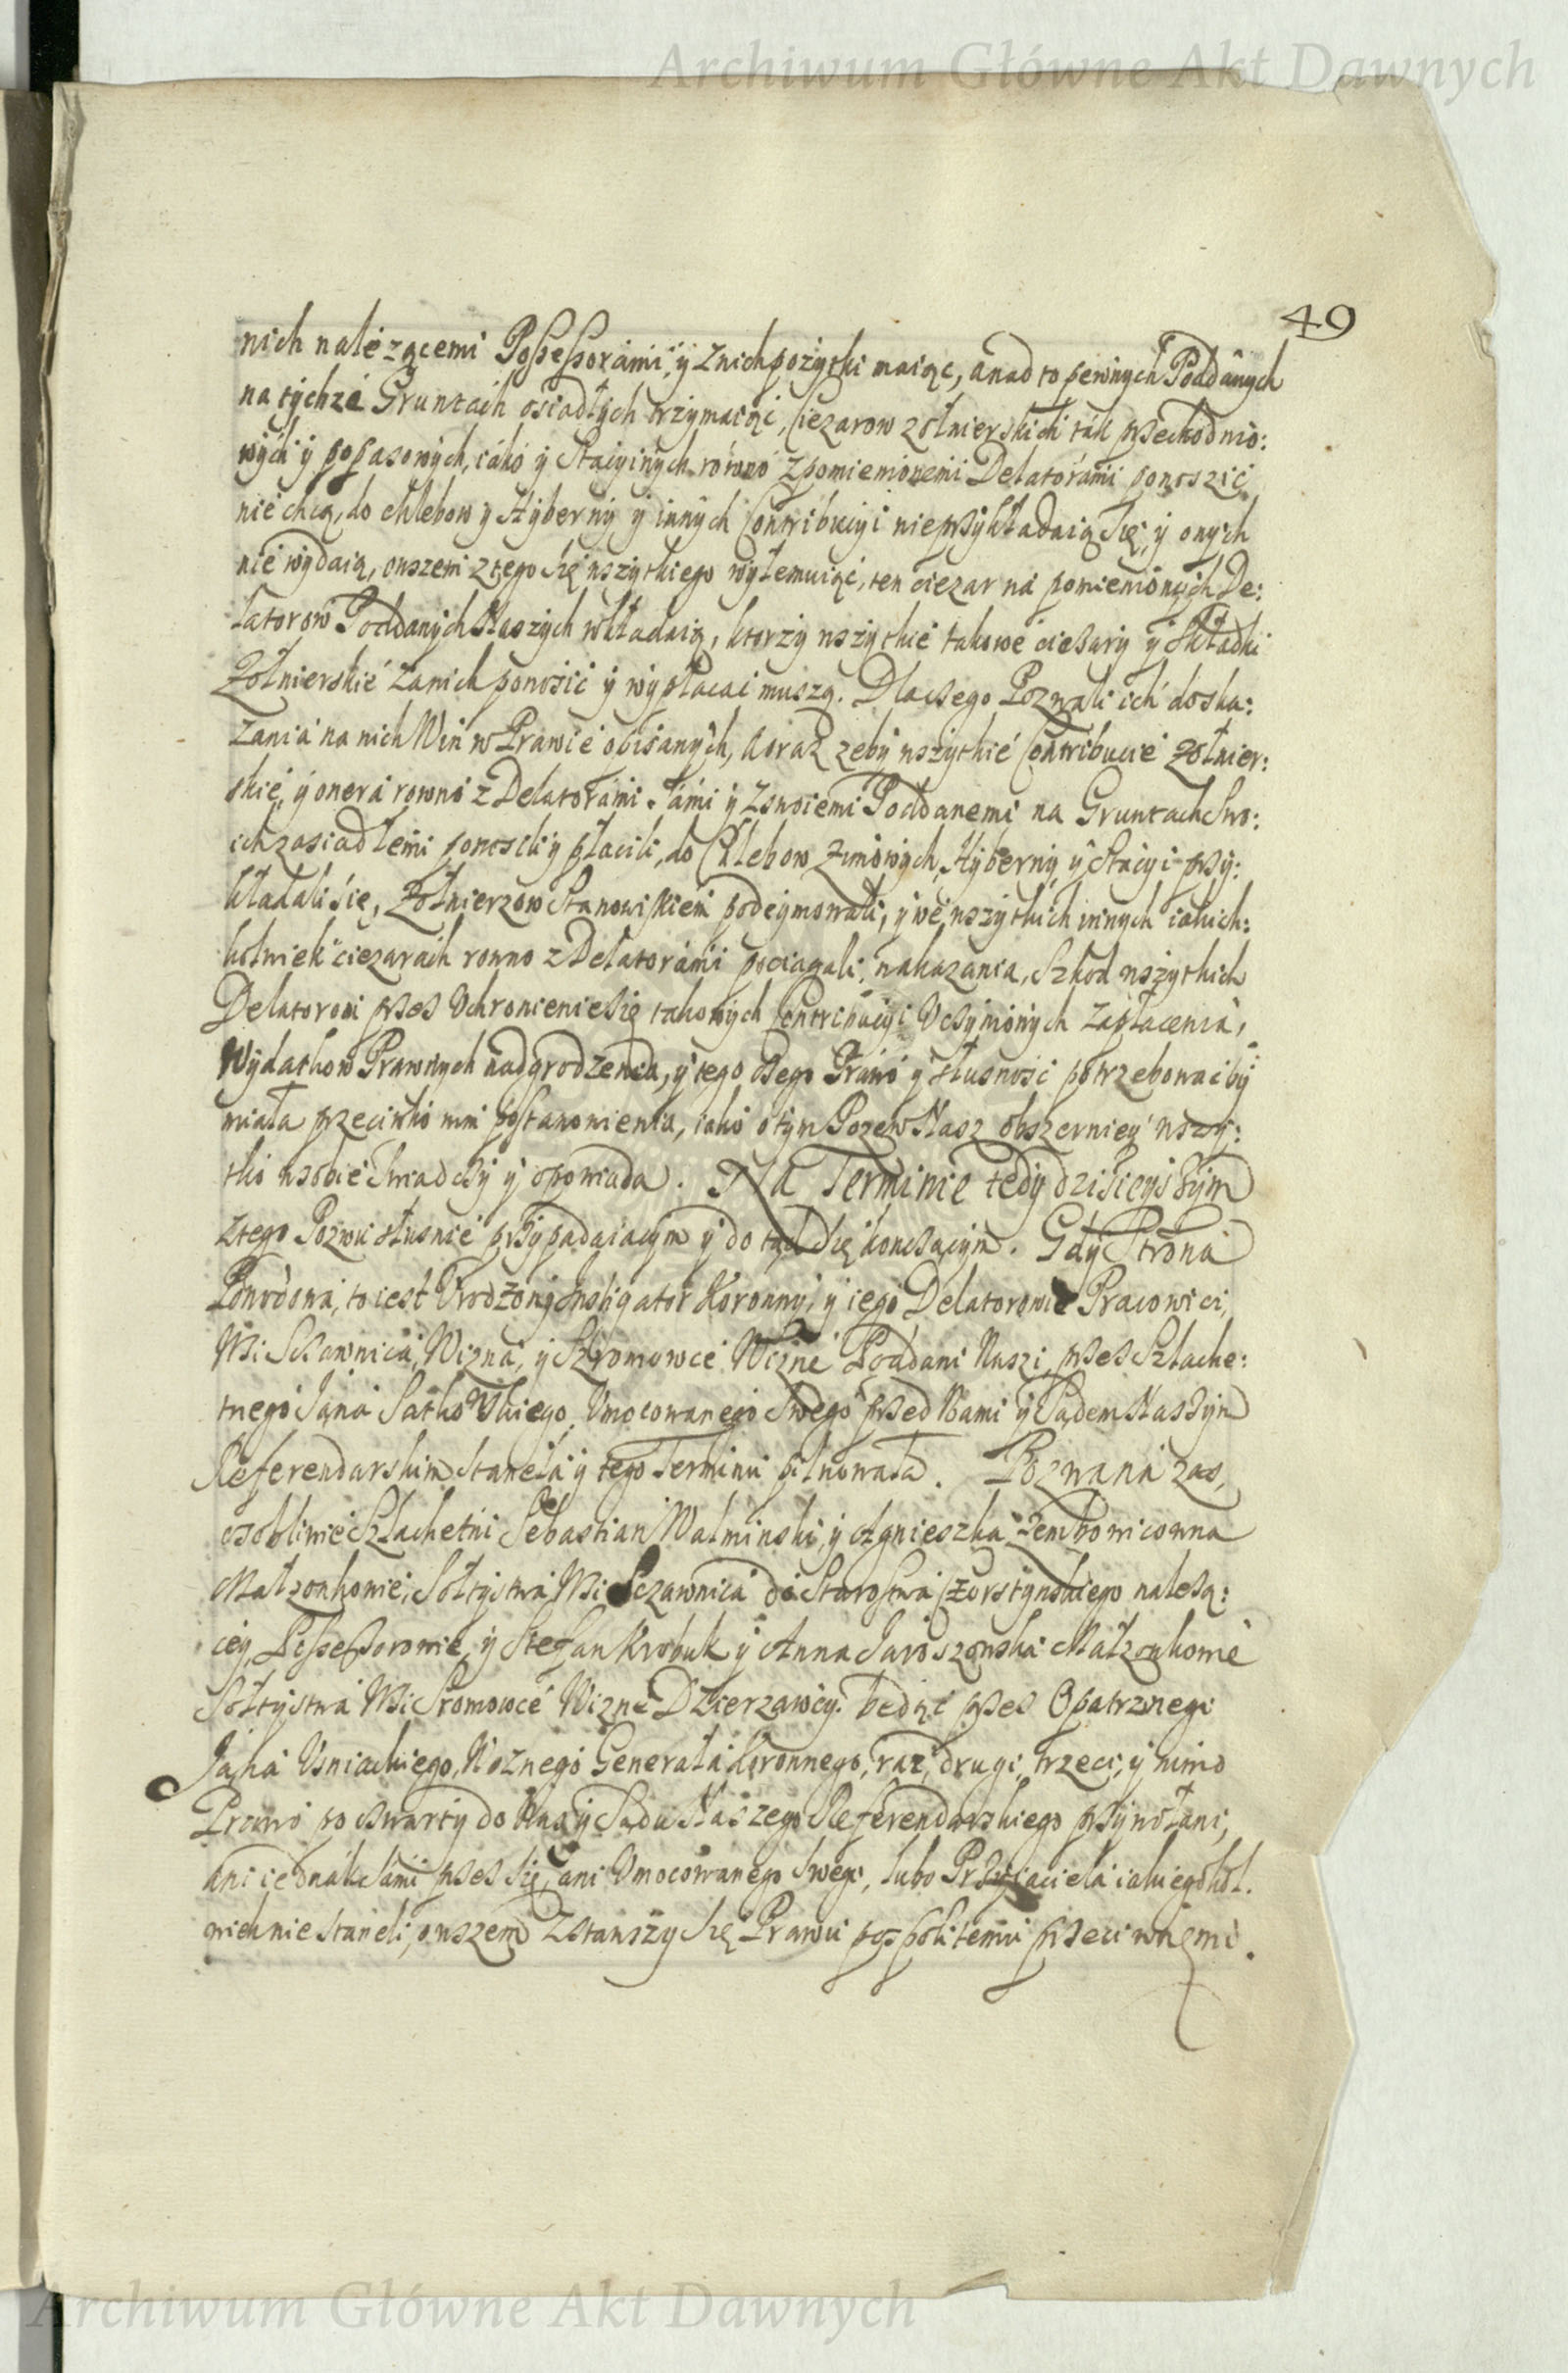 Archiwum Główne Akt Dawnych
49
nich należącemi Possessorami, y z nich pożytki maiąc, a nad to pewnych Poddanych
na tychże Gruntach osiadłych trzymaiąc, Ciezarow zołnierskich tak przechodnio:
wych y popasowych, iako y Stacyinych rowno z pomienionemi Delatorami ponosić
nie chcą, do chlebow y Hyberny y innych Contribucyi nieprzykładaią się, y onych
nie wydaią, owszem z tego się wszytkiego wyłemuiąc, ten ciezar na pomienionych De:
latorow Poddanych Naszych wkładaią, ktorzy wszytkie takowe cieżary y Składki
Zołnierskie za nich ponosić y wypłacać muszą. Dlaczego Pozwali ich do ska:
zania na nich Win w Prawie opisanych, a oraz zeby wszytkie Contribucie zołnier:
skie, y onera rowno z Delatorami Sami y z swoiemi Poddanemi na Gruntach Swo:
ich zasiadłemi ponosili y płacili, do Chlebow zimowych, Hyberny y Stacyi przy:
kładali się, Zołnierzow Stanowiskiem podeymowali, y we wszytkich innych iakich:
kolwiek ciezarach rowno z Delatorami pociągali, nakazania, Szkod wszytkich
Delatorom przez Uchronienie się takowych Contribucyi Uczynionych zapłacenia,
Wydatkow Prawnych nadgrodzenia, y tego czego Prawo y słusność potrzebować by
miała przeciwko nim postanowienia, iako o tym Pozew Nasz obszerniey wszy:
tko w sobie świadczy y opowiada. Na Terminie tedy dzisieyszym
z tego Pozwu słusnie przypadaiącym y do tąd się konczącym. Gdy Strona
Powodowa, to iest Urodzony Instigator Koronny, y iego Delatorowie Pracowici,
Wsi Sczawnica Nizna, y Szromowce Nizne Poddani Naszi, przez Szlache:
tnego Jana Satkowskiego, Umocowanego Swego przed Nami y Sądem Naszym
Referendarskim Staneła y tego Terminu pilnowała. Pozwana zas,
osobliwie Szlachetni Sebastian Walminski, y Agnieszka Zembowicowna
Małzonkowie, Sołtystwa Wsi Sczawnica do Starostwa Czorstynskiego należą:
cey, Possessorowie, y Stefan Krobuk y Anna Jaroszowska Małzonkowie
Sołtystwa Wsi Sromowce Nizne Dzierzawcy. będąc przez Opatrznego
Jana Usniackiego, Woznego Generała Koronnego, raz, drugi, trzeci, y mimo
Prawo po czwarty do Nas y Sądu Naszego Referendarskiego przywołani,
ani iednak Sami przez się, ani Umocowanego Swego, lubo Przyiaciela iakiegokol.
wiek nie staneli, owszem zstawszy się Prawu pospolitemu przeciwnemi.
Archiwum Główne Akt Dawnych